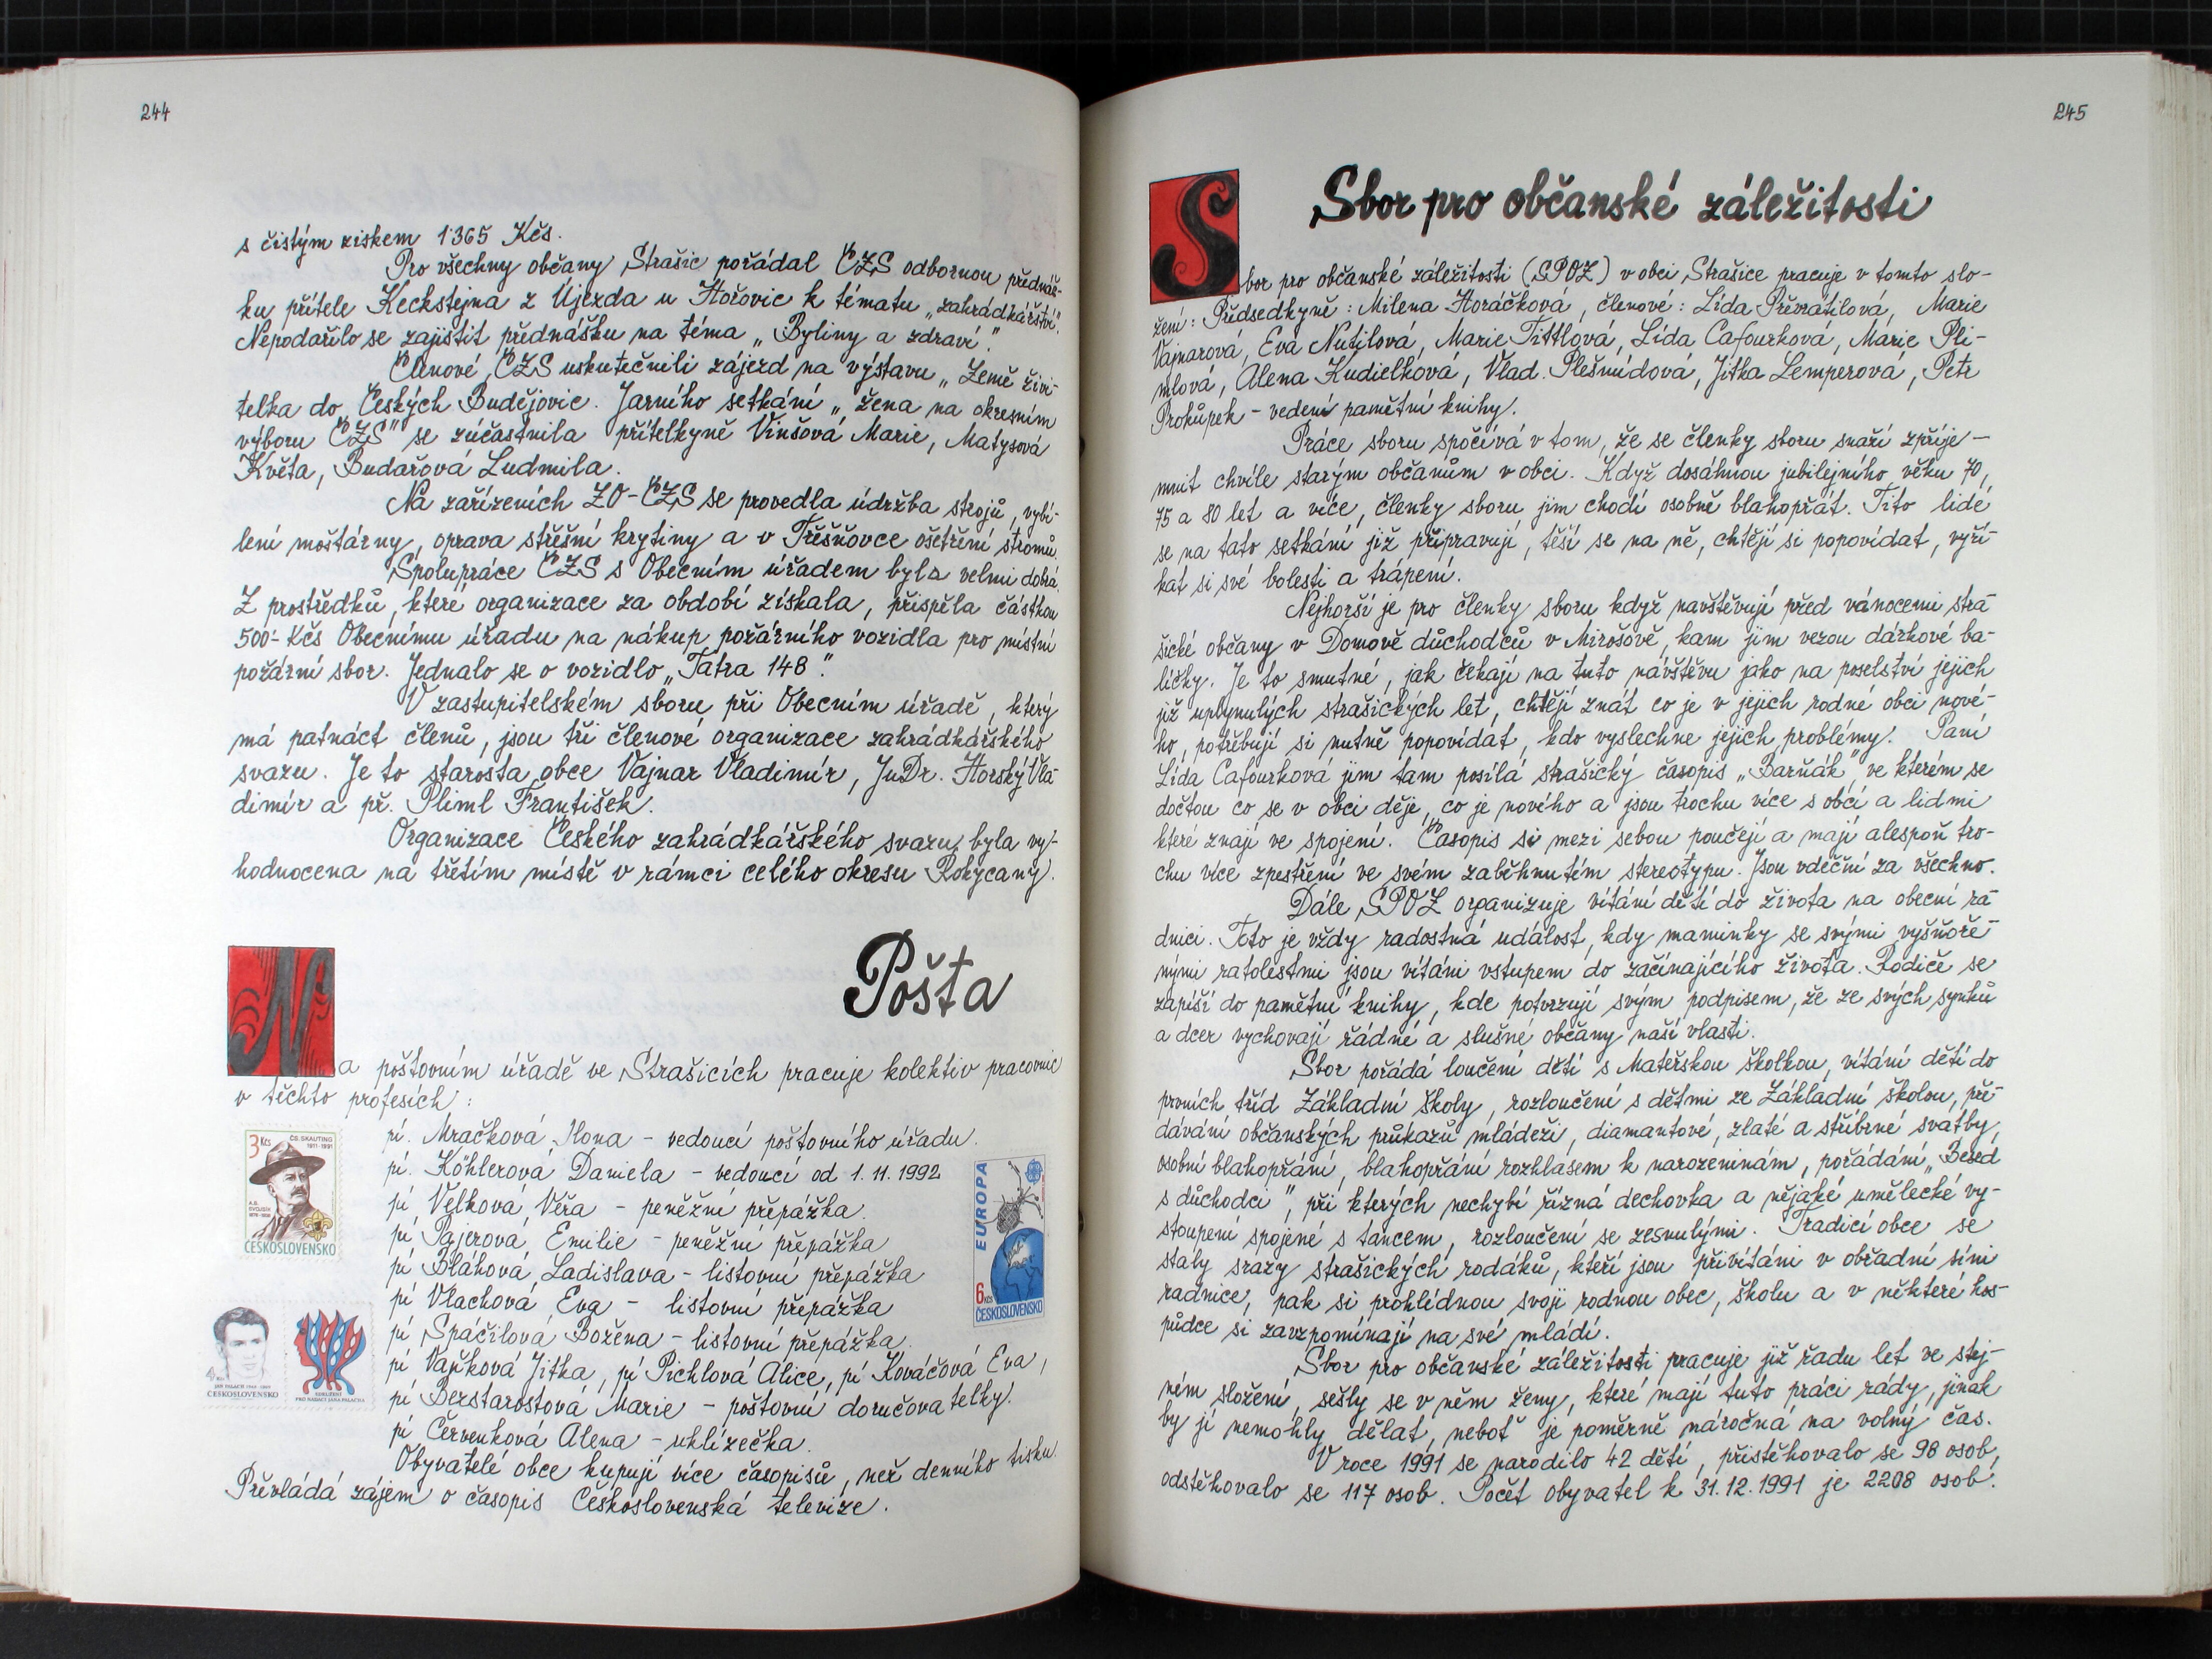 244
s čistým ziskem 1365 Kčs.
Pro všechny občany Strašic pořádal ČZS odbornou přednáš-
ku přítele Keckstejna z Újezda u Hořovic k tématu „zahrádkářství“.
Nepodařilo se zajistit přednášku na téma „Byliny a zdraví“.
Členové ČZS uskutečnili zájezd na výstavu „Země živi-
telka do Českých Budějovic. Jarního setkání „žena na okresním
výboru ČZS“ se zúčastnila přítelkyně Vinšová Marie, Matysová
Květa, Budařová Ludmila.
Na zařízeních ZO-ČZS se provedla údržba strojů, vybí-
lení moštárny, oprava střešní krytiny a v Třešňovce ošetření stromů.
Spolupráce ČZS s Obecním úřadem byla velmi dobrá.
Z prostředků, které organizace za období získala, přispěla částkou
500'- Kčs Obecnímu úřadu na nákup požárního vozidla pro místní
požární sbor. Jednalo se o vozidlo „Tatra 148“.
V zastupitelském sboru při Obecním úřadě, který
má patnáct členů, jsou tři členové organizace zahrádkářského
svazu. Je to starosta obce Vajnar Vladimír, JuDr. Horský Vla-
dimír a př. Pliml František.
Organizace Českého zahrádkářského svazu byla vy-
hodnocena na třetím místě v rámci celého okresu Rokycany.
Pošta
Na poštovním úřadě ve Strašicích pracuje kolektiv pracovnic
v těchto profesích:
pí. Mračková Ilona - vedoucí poštovního úřadu.
pí. Köhlerová Daniela - vedoucí od 1. 11. 1992
pí Velková Věra - peněžní přepážka.
pí Pajerová Emilie - peněžní přepážka
pí Bláhová Ladislava - listovní přepážka
pí Vlachová Eva - listovní přepážka
pí Spačilová Božena - listovní přepážka.
pí Vaňková Jitka, pí Pichlová Alice, pí Kováčová Eva,
pí Bezstarostová Marie - poštovní doručovatelky.
pí Červenková Alena - uklízečka.
Obyvatelé obce kupují více časopisů, než denního tisku.
Převládá zájem o časopis Československá televize.
3 Kčs
ČS. SKAUTING
1911-1991
A.B.
SVOJSÍK
1876-1938
ČESKOSLOVENSKO
EUROPA
6 Kčs
ČESKOSLOVENSKO
JAN PALACH 1948 1969
ČESKOSLOVENSKO
PRO NADACI JANA PALACHA
245
Sbor pro občanské záležitosti
Sbor pro občanské záležitosti (SPOZ) v obci Strašice pracuje v tomto slo-
žení: Předsedkyně: Milena Horáčková, členové: Lída Převrátilová, Marie
Vajnarová, Eva Nutilová, Marie Tittlová, Lída Cafourková, Marie Pli-
mlová, Alena Kudielková, Vlad. Plešmídová, Jitka Lemperová, Petr
Prokůpek - vedení pamětní knihy.
Práce sboru spočívá v tom, že se členky sboru snaží zpříje-
mnit chvíle starým občanům v obci. Když dosáhnou jubilejního věku 70,
75 a 80 let a více, členky sboru jim chodí osobně blahopřát. Tito lidé
se na tato setkání již připravují, těší se na ně, chtějí si popovídat, vyří-
kat si své bolesti a trápení.
Nejhorší je pro členky sboru když navštěvují před vánocemi stra-
šické občany v Domově důchodců v Mirošově, kam jim vezou dárkové ba-
líčky. Je to smutné, jak čekají na tuto návštěvu jako na poselství jejich
již uplynulých strašických let, chtějí znát co je v jejich rodné obci nové-
ho, potřebují si nutně popovídat, kdo vyslechne jejich problémy. Paní
Lída Cafourková jim tam posílá strašický časopis „Barňák“, ve kterém se
dočtou co se v obci děje, co je nového a jsou trochu více s obcí a lidmi
které znají ve spojení. Časopis si mezi sebou poučejí a mají alespoň tro-
chu více zpestření ve svém zaběhnutém stereotypu. Jsou vděční za všechno.
Dále SPOZ organizuje vítání dětí do života na obecní ra-
dnici. Toto je vždy radostná událost, kdy maminky se svými vyšňoře-
nými ratolestmi jsou vítáni vstupem do začínajícího života. Rodiče se
zapíší do pamětní knihy, kde potvrzují svým podpisem, že ze svých synků
a dcer vychovají řádné a slušné občany naší vlasti.
Sbor pořádá loučení dětí s Mateřskou školkou, vítání dětí do
prvních tříd Základní školy, rozloučení s dětmi ze Základní školou, pře-
dávání občanských průkazů mládeži, diamantové, zlaté a stříbrné svatby,
osobní blahopřání, blahopřání rozhlasem k narozeninám, pořádání „Besed
s důchodci“, při kterých nechybí řízná dechovka a nějaké umělecké vy-
stoupení spojené s tancem, rozloučení se zesnulými. Tradicí obce se
staly srazy strašických rodáků, kteří jsou přivítáni v obřadní síni
radnice, pak si prohlédnou svoji rodnou obec, školu a v některé hos-
půdce si zavzpomínají na své mládí.
Sbor pro občanské záležitosti pracuje již řadu let ve stej-
ném složení, sešly se v něm ženy, které mají tuto práci rády, jinak
by jí nemohly dělat, neboť je poměrně náročná na volný čas.
V roce 1991 se narodilo 42 dětí, přistěhovalo se 98 osob,
odstěhovalo se 117 osob. Počet obyvatel k 31.12.1991 je 2208 osob.